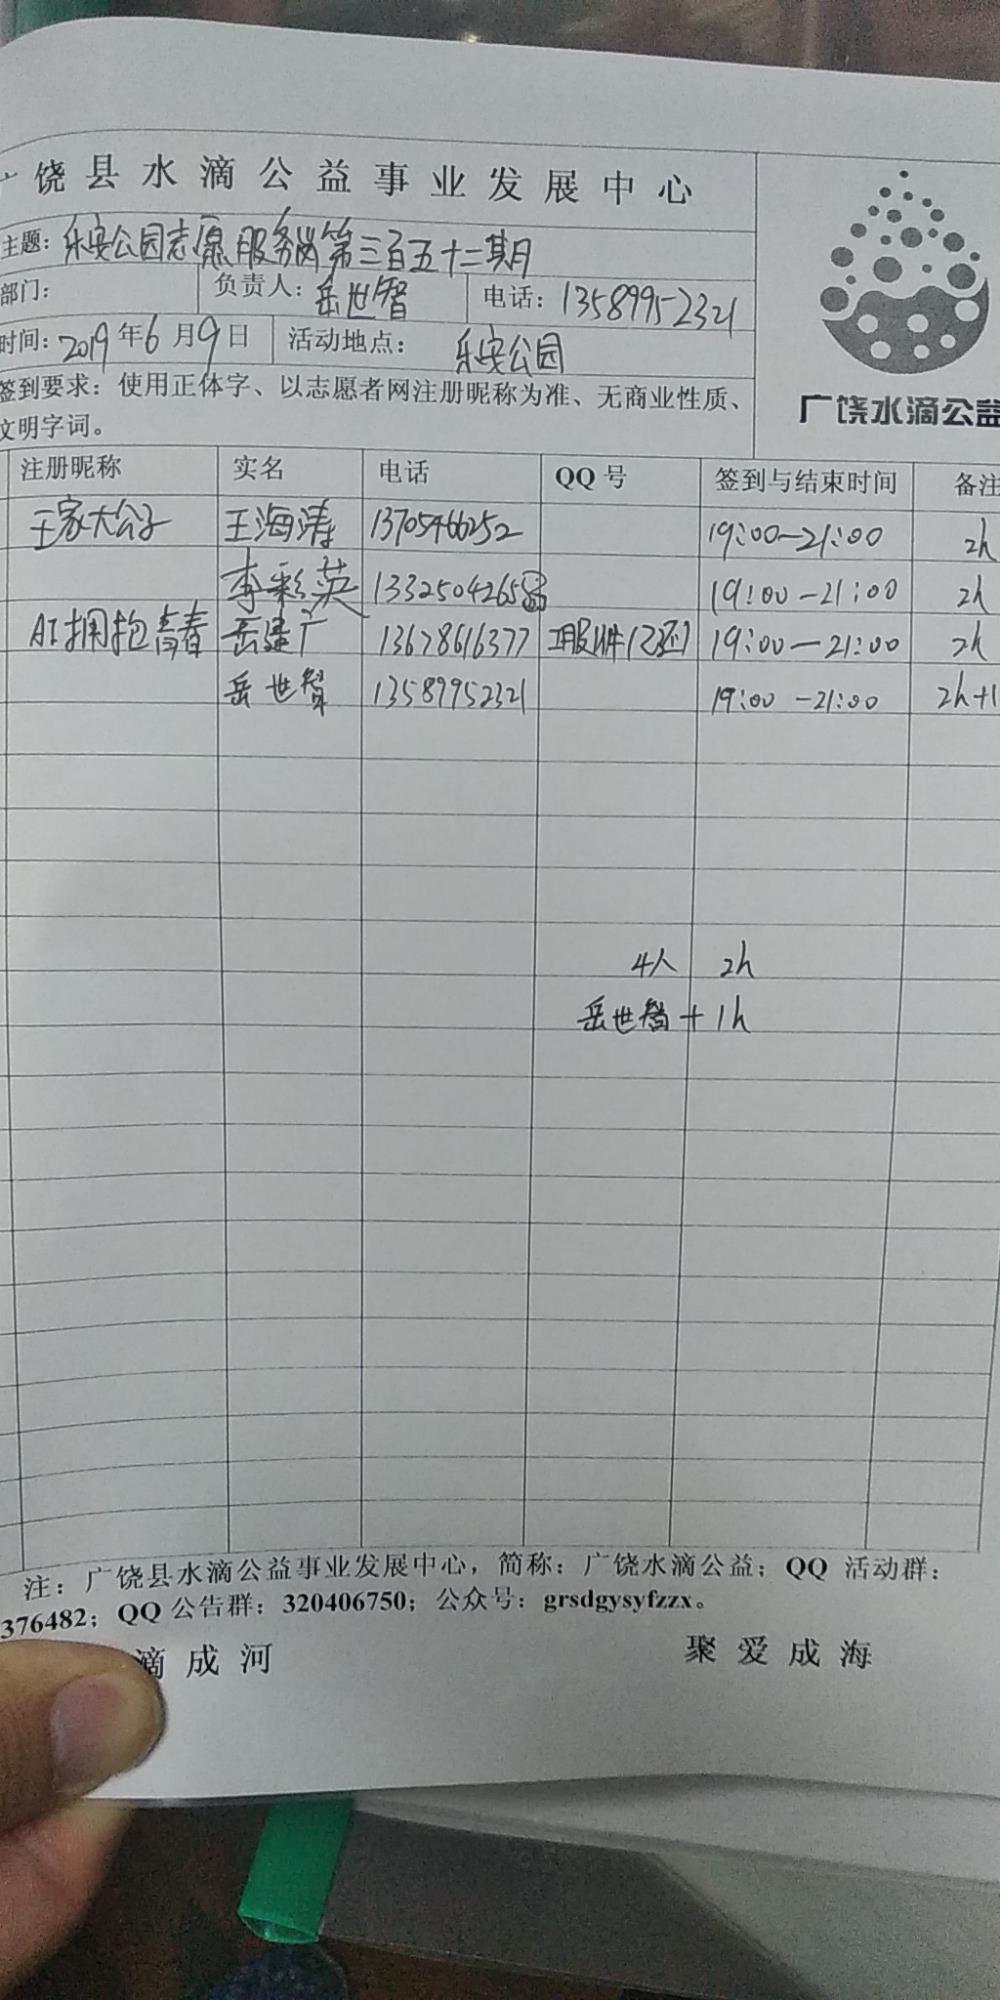 广饶县水滴公益事业发展中心
主题：乐安公园志愿服务岗第三百五十二期
部门： 负责人：岳世智 电话：13589952321
时间：2019年6月9日 活动地点： 乐安公园
签到要求：使用正体字、以志愿者网注册昵称为准、无商业性质、
文明字词。
广饶水滴公益
注册昵称 实名 电话 QQ 号 签到与结束时间 备注
王家大公子 王海涛 13705466252 19:00-21:00 2h
李彩英 1332504265 19:00-21:00 2h
AI拥抱青春 岳建广 13678616377 19:00-21:00 2h
岳世智 13589952321 19:00-21:00 2h+1
4人 2h
岳世智+1h
注：广饶县水滴公益事业发展中心，简称：广饶水滴公益；QQ 活动群：
376482；QQ 公告群：320406750；公众号：grsdgysyfzzx。
滴成河 聚爱成海